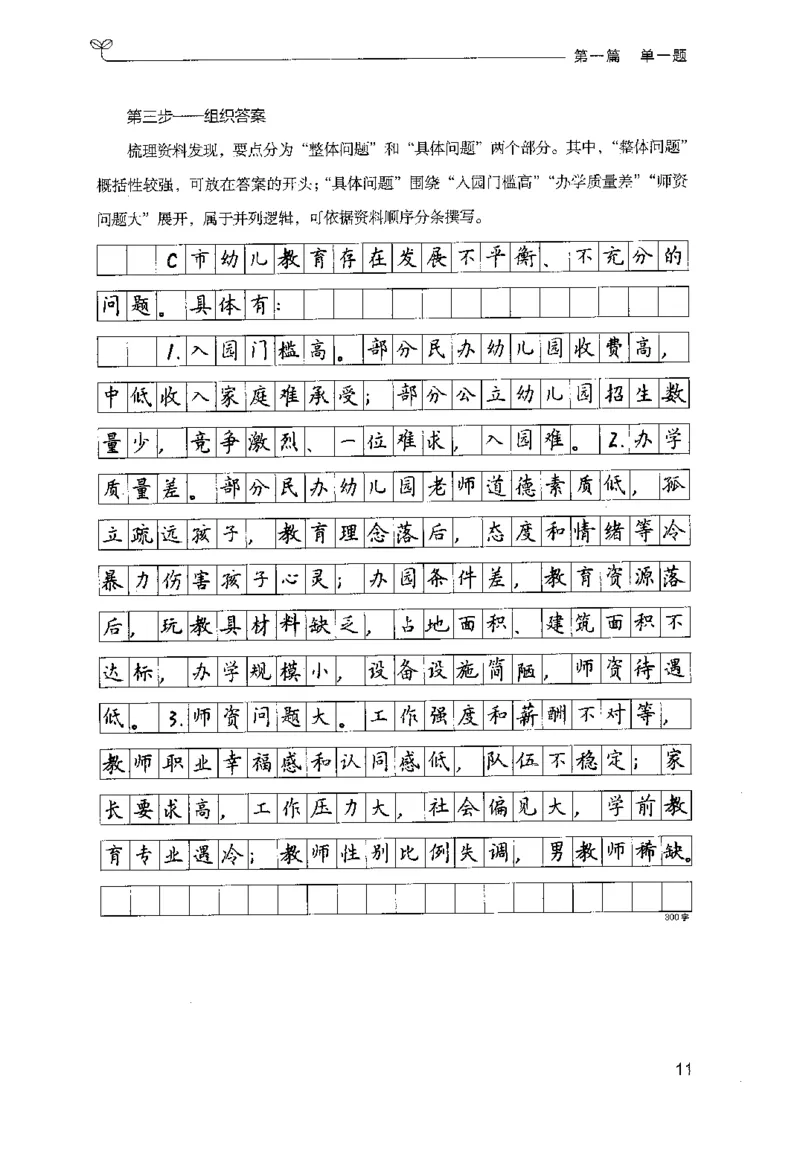 第一篇 单一题
第三步——组织答案
梳理资料发现，要点分为“整体问题”和“具体问题”两个部分。其中，“整体问题”
概括性较强，可放在答案的开头；“具体问题”围绕“入园门槛高”“办学质量差”“师资
问题大”展开，属于并列逻辑，可依据资料顺序分条撰写。
C市幼儿教育存在发展不平衡、不充分的
问题。具体有：
1.入园门槛高。部分民办幼儿园收费高，
中低收入家庭难承受；部分公立幼儿园招生数
量少，竞争激烈、一位难求，入园难。2.办学
质量差。部分民办幼儿园老师道德素质低，孤
立疏远孩子，教育理念落后，态度和情绪等冷
暴力伤害孩子心灵；办园条件差，教育资源落
后，玩教具材料缺乏，占地面积、建筑面积不
达标，办学规模小，设备设施简陋，师资待遇
低。3.师资问题大。工作强度和薪酬不对等，
教师职业幸福感和认同感低，队伍不稳定；家
长要求高，工作压力大，社会偏见大，学前教
育专业遇冷；教师性别比例失调，男教师稀缺。
300字
11